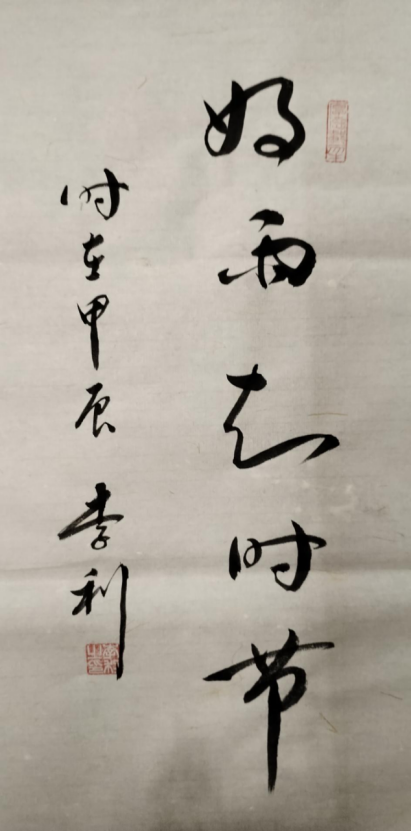 好雨知时节
时在甲辰 李利